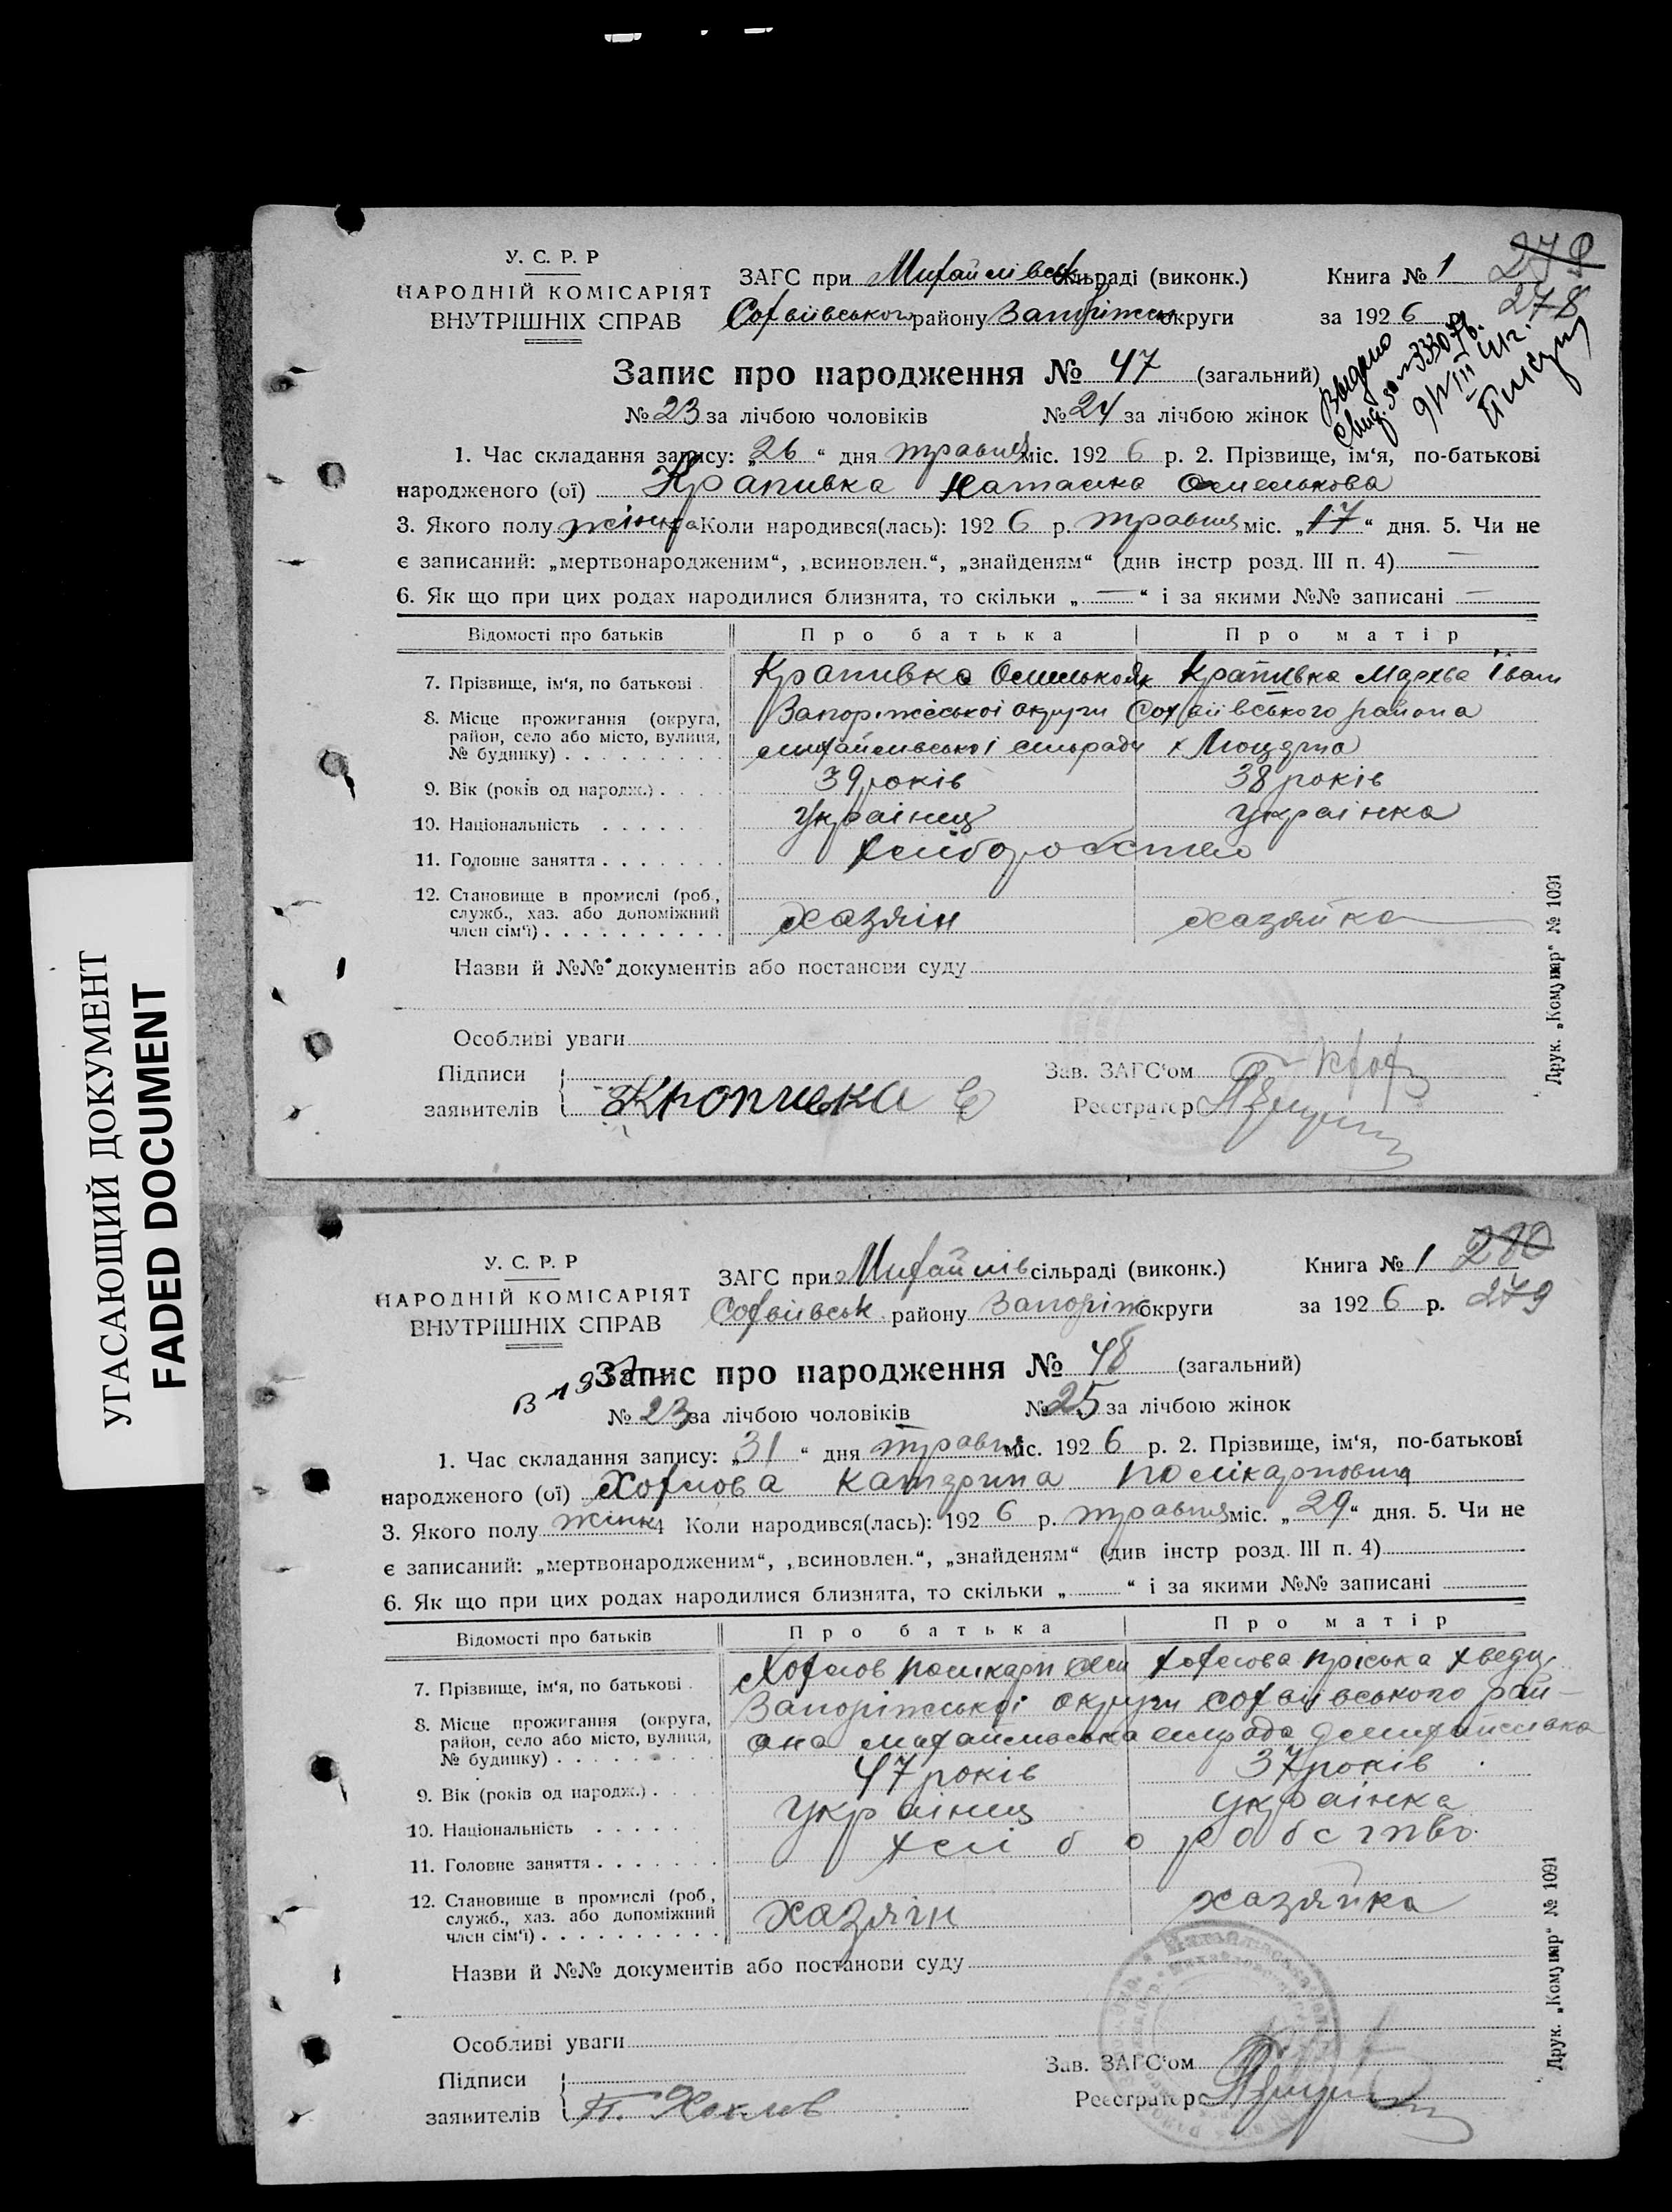 У. С. Р. Р
НАРОДНІЙ КОМІСАРІЯТ
ВНУТРІШНІХ СПРАВ
ЗАГС при Михайлівськ сільраді (виконк.)
Софіївського району Запоріжськ округи
Книга № 1
за 1926 р.
278
Запис про народження № 47 (загальний)
№ 23 за лічбою чоловіків № 24 за лічбою жінок
Выдано
1. Час складання запису: „26“ дня травня міс. 1926 р. 2. Прізвище, ім‘я, по-батькові
народженого (ої) Крапивка Наталка Омелькова
3. Якого полу жінка Коли народився(лась): 1926 р. травня міс. „17“ дня. 5. Чи не
є записаний: „мертвонародженим“, „всиновлен.“, „знайденям“ (див інстр розд. III п. 4) —
6. Як що при цих родах народилися близнята, то скільки „—“ і за якими №№ записані —
Відомості про батьків Про батька Про матір
7. Прізвище, ім‘я, по батькові . Крапивка Крапивка Мархва Іван
8. Місце прожигання (округа, район, село або місто, вулиця, № будинку) . . . . . . . . . Запоріжської округи Софіївського района
михайлівської сільради х
9. Вік (років од народж.) . . . . 39 років 38 років
10. Національність . . . . . . українец українка
11. Головне заняття . . . . . . . хліборобство
12. Становище в промислі (роб., служб., хаз. або допоміжний член сім‘ї) . . . . . . . . . . хазяін хазяйка
Назви й №№ документів або постанови суду
Особливі уваги
Підписи
заявителів Кропивка Є
Зав. ЗАГС‘ом
Реєстратор
Друк. „Комунар“ № 1091
УГАСАЮЩИЙ ДОКУМЕНТ
FADED DOCUMENT
У. С. Р. Р
НАРОДНІЙ КОМІСАРІЯТ
ВНУТРІШНІХ СПРАВ
ЗАГС при Михайлів сільраді (виконк.)
Софіївськ. району Запоріж округи
Книга № 1 280
за 1926 р. 279
Запис про народження № 48 (загальний)
№ 23 за лічбою чоловіків № 25 за лічбою жінок
1. Час складання запису: „31“ дня травня міс. 1926 р. 2. Прізвище, ім‘я, по-батькові
народженого (ої) Хохлова Катерина Полікарповна
3. Якого полу жінка Коли народився(лась): 1926 р. травня міс. „29“ дня. 5. Чи не
є записаний: „мертвонародженим“, „всиновлен.“, „знайденям“ (див інстр розд. III п. 4)
6. Як що при цих родах народилися близнята, то скільки „ “ і за якими №№ записані
Відомості про батьків Про батька Про матір
7. Прізвище, ім‘я, по батькові . Хохлов Полікарп Хохлова Пріська Хведір
8. Місце прожигання (округа, район, село або місто, вулиця, № будинку) . . . . . . . . . Запоріжської округи софіівського рай-
она михайлівська сілрада
9. Вік (років од народж.) . . . . 47 років 37 років
10. Національність . . . . . українец українка
11. Головне заняття . . . . . . . хліборобство
12. Становище в промислі (роб., служб., хаз. або допоміжний член сім‘ї) . . . . . . . . . . хазяін хазяйка
Назви й №№ документів або постанови суду
Особливі уваги
Підписи
заявителів П. Хохлов
Зав. ЗАГС‘ом
Реєстратор
Друк. „Комунар“ № 1091